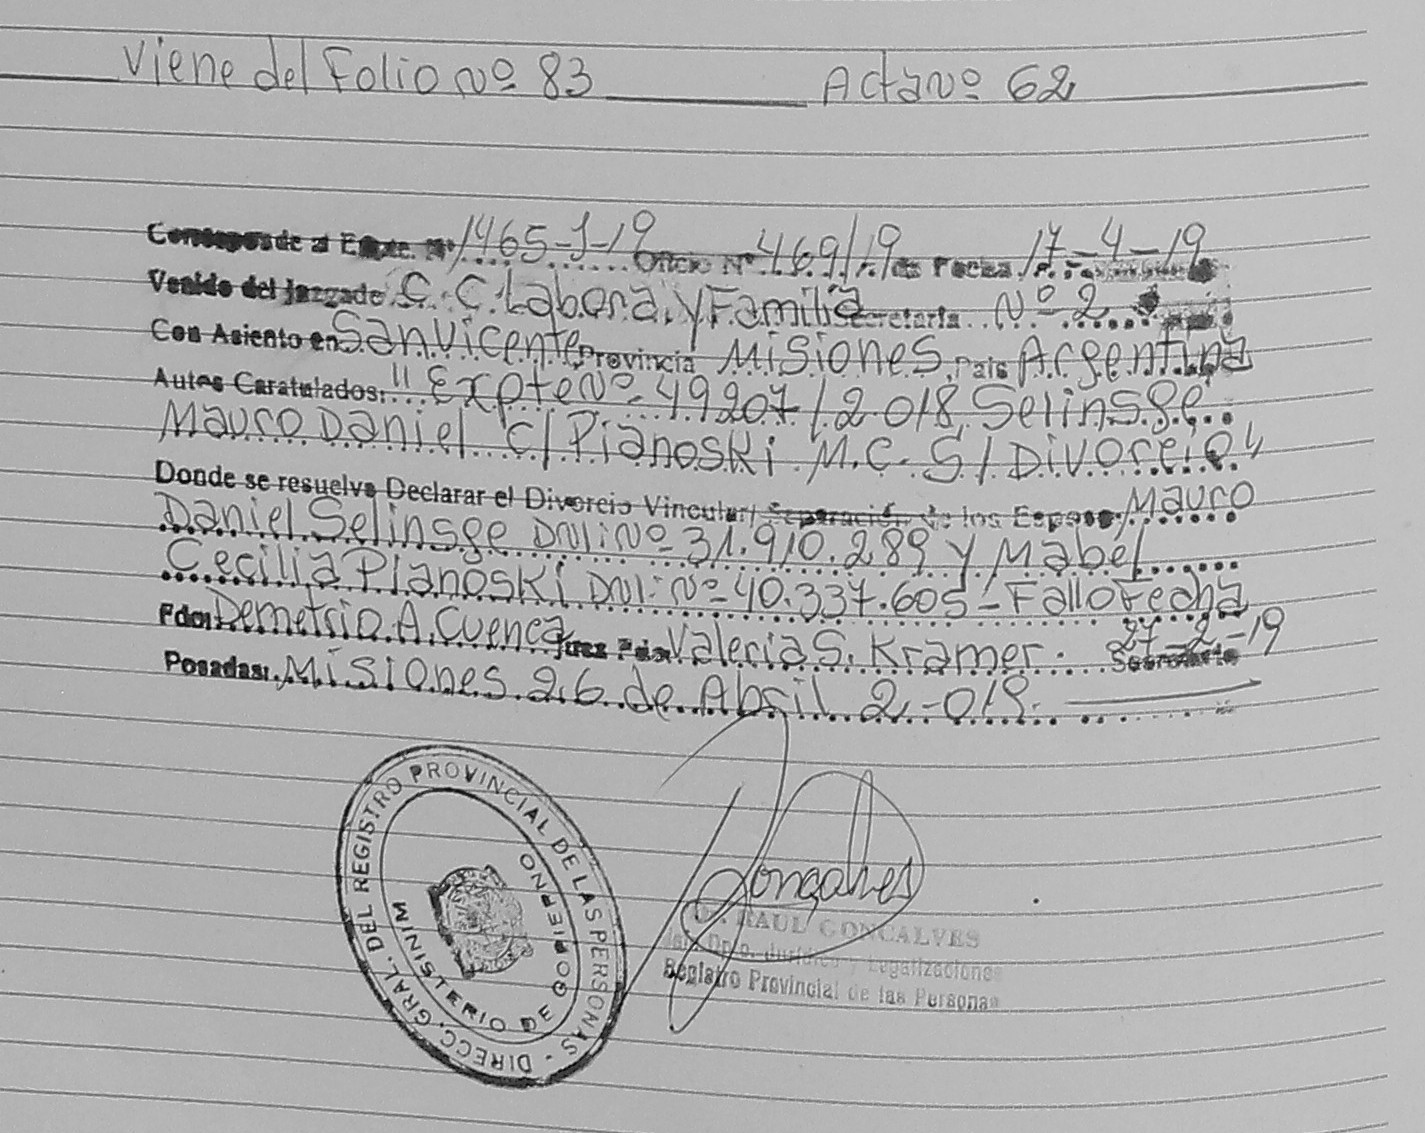 Viene del Folio Nº 83 Acta Nº 62
Corresponde al Expte. Nº 1465-J-19 Oficio Nº 469/19 de Fecha 17-4-19
Venido del Juzgado C. C. Laboral y Familia Secretaría Nº 2
Con Asiento en San Vicente Provincia Misiones País Argentina
Autos Caratulados: "Expte Nº 49207/2.018, Selinsge
Mauro Daniel c/ Pianoski M.C. S/ Divorcio"
Donde se resuelve Declarar el Divorcio Vincular/ Separación de los Esposos Mauro
Daniel Selinsge DNI: Nº 31.910.289 y Mabel
Cecilia Pianoski DNI: Nº 40.337.605 - Fallo Fecha
27-2-19
Fdo: Demetrio A. Cuenca Juez Fdo: Valeria S. Kramer. Secretaria
Posadas: Misiones 26 de Abril 2.019.
DIRECC. GRAL. DEL REGISTRO PROVINCIAL DE LAS PERSONAS -
MINISTERIO DE GOBIERNO
Goncalves
Dr. RAUL GONCALVES
Dpto. Jurídico y Legalizaciones
Registro Provincial de las Personas